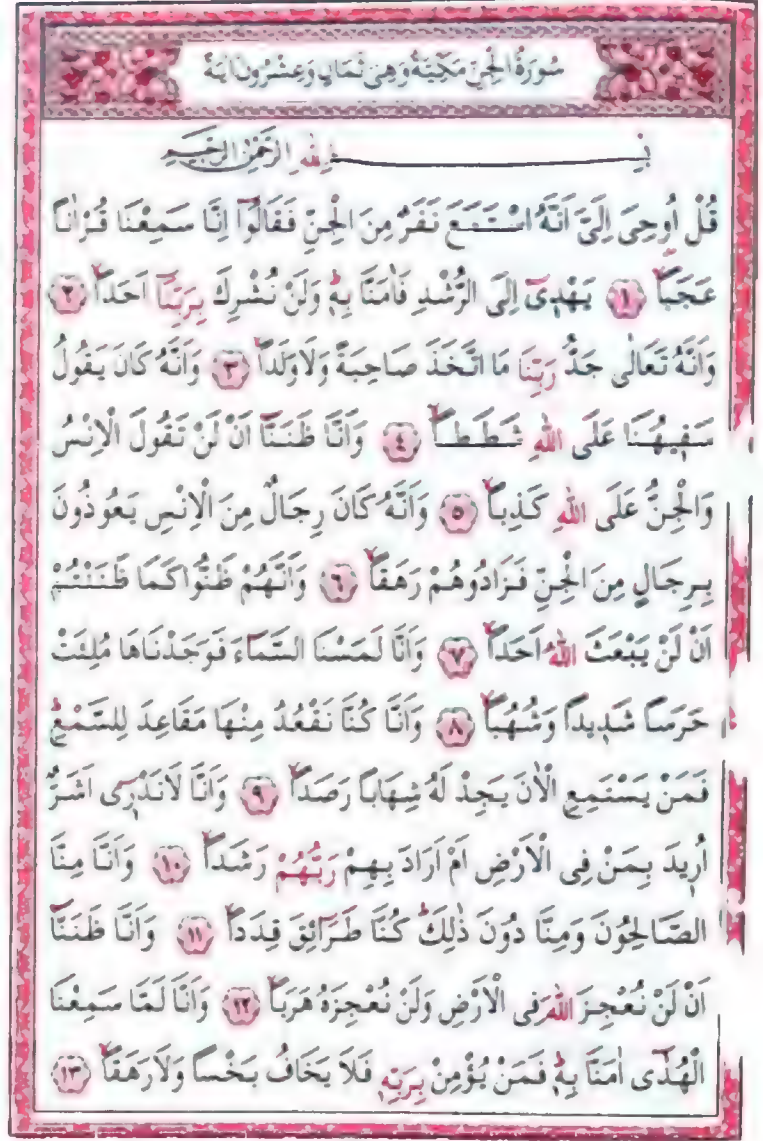 سُورَةُ الْجِنِّ مَكِّيَّةٌ وَهِيَ ثَمَانٍ وَعِشْرُونَ اٰيَةً
بِسْمِ اللهِ الرَّحْمٰنِ الرَّحِيمِ
قُلْ اُوحِيَ اِلَيَّ اَنَّهُ اسْتَمَعَ نَفَرٌ مِنَ الْجِنِّ فَقَالُٓوا اِنَّا سَمِعْنَا قُرْاٰناً
عَجَباًۙ ﴿١﴾ يَهْدٖٓي اِلَى الرُّشْدِ فَاٰمَنَّا بِهٖؕ وَلَنْ نُشْرِكَ بِرَبِّنَٓا اَحَداًۙ ﴿٢﴾
وَاَنَّهُ تَعَالٰى جَدُّ رَبِّنَا مَا اتَّخَذَ صَاحِبَةً وَلَا وَلَداًۙ ﴿٣﴾ وَاَنَّهُ كَانَ يَقُولُ
سَفٖيهُنَا عَلَى اللهِ شَطَطاًۙ ﴿٤﴾ وَاَنَّا ظَنَنَّٓا اَنْ لَنْ تَقُولَ الْاِنْسُ
وَالْجِنُّ عَلَى اللهِ كَذِباًۙ ﴿٥﴾ وَاَنَّهُ كَانَ رِجَالٌ مِنَ الْاِنْسِ يَعُوذُونَ
بِرِجَالٍ مِنَ الْجِنِّ فَزَادُوهُمْ رَهَقاًۙ ﴿٦﴾ وَاَنَّهُمْ ظَنُّوا كَمَا ظَنَنْتُمْ
اَنْ لَنْ يَبْعَثَ اللهُ اَحَداًۙ ﴿٧﴾ وَاَنَّا لَمَسْنَا السَّمَٓاءَ فَوَجَدْنَاهَا مُلِئَتْ
حَرَساً شَدٖيداً وَشُهُباًۙ ﴿٨﴾ وَاَنَّا كُنَّا نَقْعُدُ مِنْهَا مَقَاعِدَ لِلسَّمْعِؕ
فَمَنْ يَسْتَمِعِ الْاٰنَ يَجِدْ لَهُ شِهَاباً رَصَداًۙ ﴿٩﴾ وَاَنَّا لَا نَدْرٖٓي اَشَرٌّ
اُرٖيدَ بِمَنْ فِي الْاَرْضِ اَمْ اَرَادَ بِهِمْ رَبُّهُمْ رَشَداًۙ ﴿١٠﴾ وَاَنَّا مِنَّا
الصَّالِحُونَ وَمِنَّا دُونَ ذٰلِكَؕ كُنَّا طَرَٓائِقَ قِدَداًۙ ﴿١١﴾ وَاَنَّا ظَنَنَّٓا
اَنْ لَنْ نُعْجِزَ اللهَ فِي الْاَرْضِ وَلَنْ نُعْجِزَهُ هَرَباًۙ ﴿١٢﴾ وَاَنَّا لَمَّا سَمِعْنَا
الْهُدٰٓى اٰمَنَّا بِهٖؕ فَمَنْ يُؤْمِنْ بِرَبِّهٖ فَلَا يَخَافُ بَخْساً وَلَا رَهَقاًۙ ﴿١٣﴾